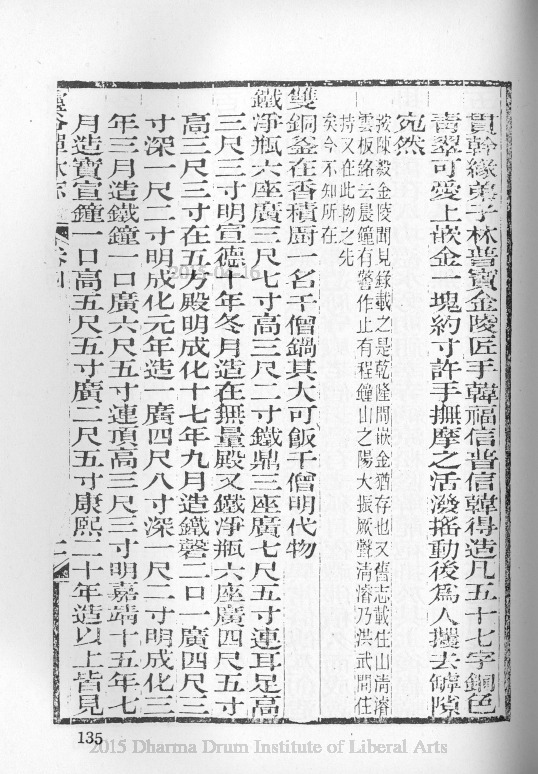 貫幹緣弟子林普寶金陵匠手韓福信普信韓得造凡五十七字銅色
青翠可愛上嵌金一塊約寸許手撫摩之活潑搖動後爲人攫去罅隙
宛然
按陳毅金陵聞見錄載之是乾隆間嵌金猶存也又舊志載住山清濬
雲板銘云晨鐘有警作止有程鐘山之陽大振厥聲清濬乃洪武間住
持又在此物之先
矣今不知所在
雙銅釜在香積廚一名千僧鍋其大可飯千僧明代物
鐵淨瓶六座廣三尺七寸高三尺二寸鐵鼎三座廣七尺五寸連耳足高
三尺三寸明宣德十年冬月造在無量殿又鐵淨瓶六座廣四尺五寸
高三尺三寸在五方殿明成化十七年九月造鐵磬二口一廣四尺三
寸深一尺二寸明成化元年造一廣四尺八寸深一尺二寸明成化三
年三月造鐵鐘一口廣六尺五寸連頂高三尺三寸明嘉靖十五年七
月造寶宣鐘一口高五尺五寸廣二尺五寸康熙二十年造以上皆見
靈谷禪林志 卷四 二
135
2015 Dharma Drum Institute of Liberal Arts